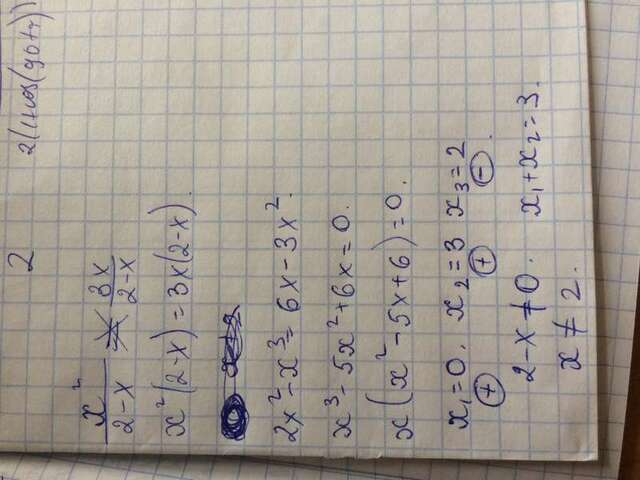 2
2(1+cos(90+
x²/(2-x) = 3x/(2-x)
x²(2-x)=3x(2-x).
2x²-x³=6x-3x².
x³-5x²+6x=0.
x(x²-5x+6)=0.
x₁=0. x₂=3 x₃=2
⊕ ⊕ ⊖.
2-x≠0. x₁+x₂=3.
x≠2.